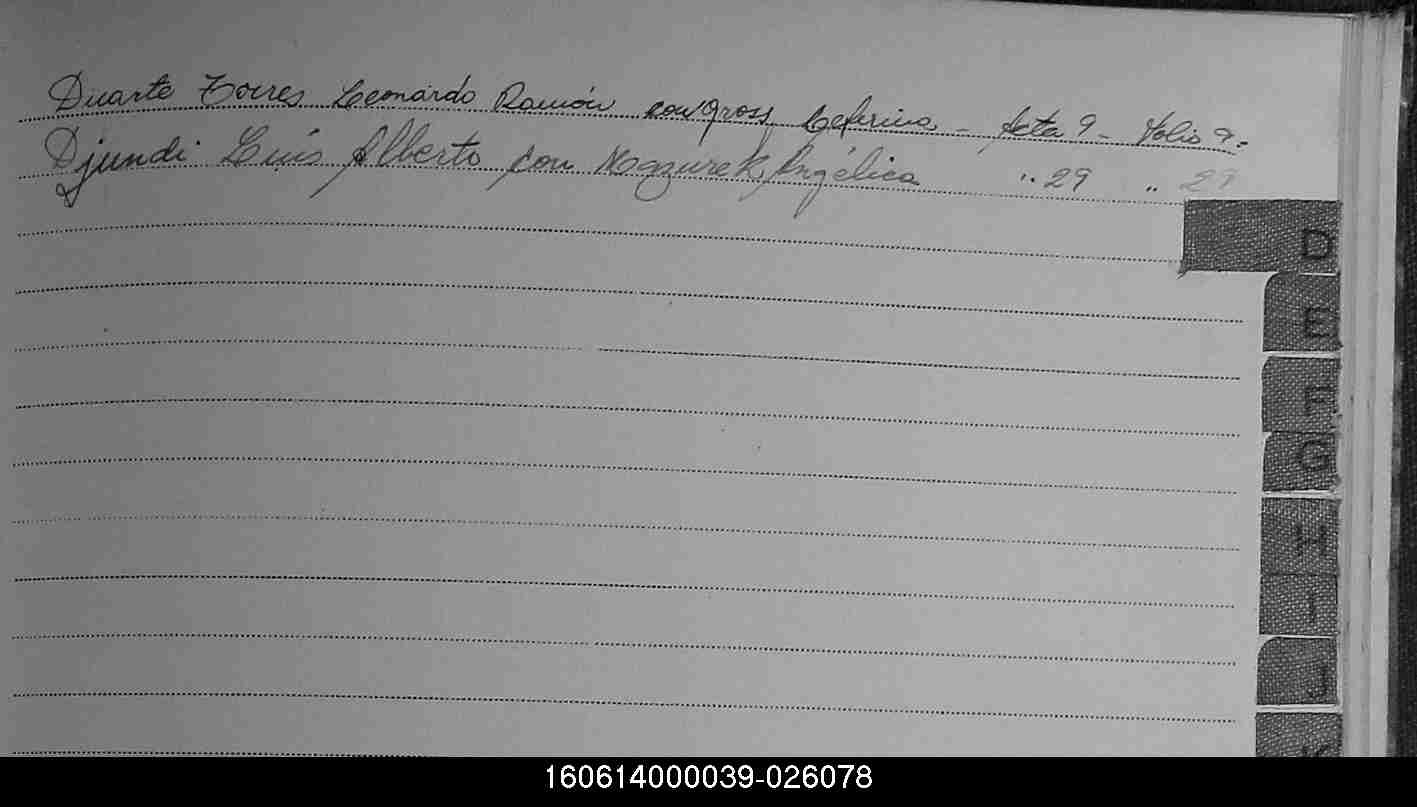 Duarte Torres Leonardo Ramón con Gross Ceferina - Acta 9 - Folio 9.-
Djundi Luis Alberto con Mazurek Angélica " 29 " 29
D
E
F
G
H
I
J
K
160614000039-026078